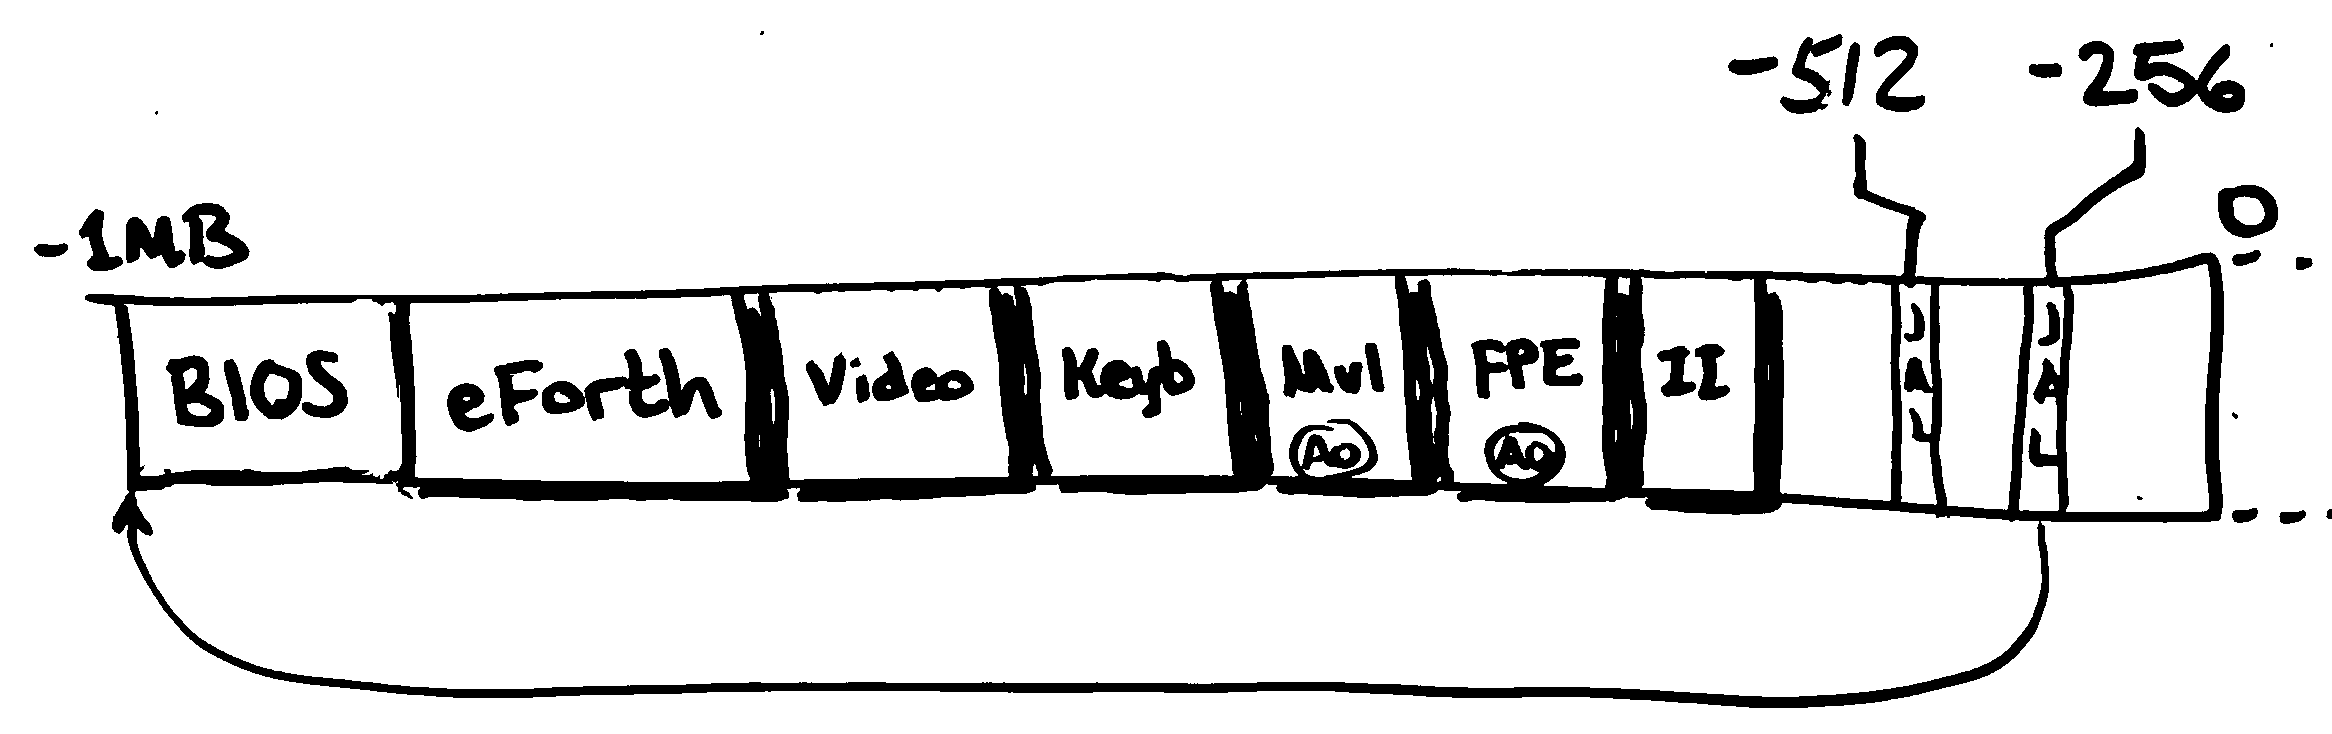 -512 -256
-1MB 0
BIOS eForth Video Keyb Mul FPE II JAL JAL
A0 A0